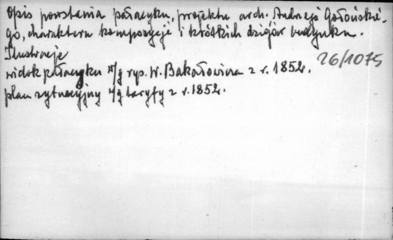 Opis powstania pałacyku, projektu arch. Andrzeja Gołońskie-
go, charakteru kompozycji i krótkich dziejów budynku.
Ilustracje
widok pałacyku w/g rys. W. Bakałowicza z r. 1852.
26/1075
plan sytuacyjny w/g taryfy z r. 1852.